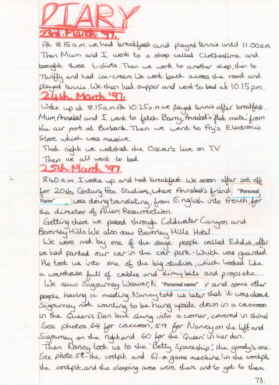 DIARY
23rd March '97.
At 8.15 a.m. we had breakfast and played tennis until 11.00am
Then Mum and I went to a shop called Clothestime and
bought three t-shirts. Then we went to another shop, the
Thrifty and had ice-cream. We went back across the road and
played tennis. We then had supper and went to bed at 10.15 pm.
24th March '97.
Woke up at 8.15 a.m. At 10.25 a.m we played tennis after breakfast.
Mum, Annabel and I went to fetch Barry, Annabel's flat mate from
the air port at Burbank. Then we went to Fry's Electronic
Store which was massive.
That night we watched the Oscar's live on TV
Then we all went to bed.
25th March '97.
8.40 a.m. I woke up and had breakfast. We soon after set off
for 20th Century Fox Studios, where Annabel's friend "Personal
name" was doing translating, from English into French for
the director of Alien Resurrection.
Getting there we passed through Coldwater Canyon and
Beverley Hills. We also saw Beverley Hills Hotel.
We were met by one of the stage people called Eddie, after
we had parked our car in the car park. Which was guarded
He took us into one of the big studios, which looked like
a warehouse full of cables and dimmy lights and props etc.
We saw Sigourney Weaver "Personal name" and some other
people having a meeting. Nancy told us later that it was about
Sigourney not wanting to be hung upside down in a cocoon
in the Queen's Den but slung into a corner, covered in slime
See photos 58 for cocoon, 59 for Nancy on the left and
Sigourney on the right and 60 for the Queen in her den.
Then Nancy took us to the Betty Spaceship, the goody's one
See photo 57 - the cockpit and 61 a game machine in the cockpit
the cockpit and the sleeping area were there and to get to them